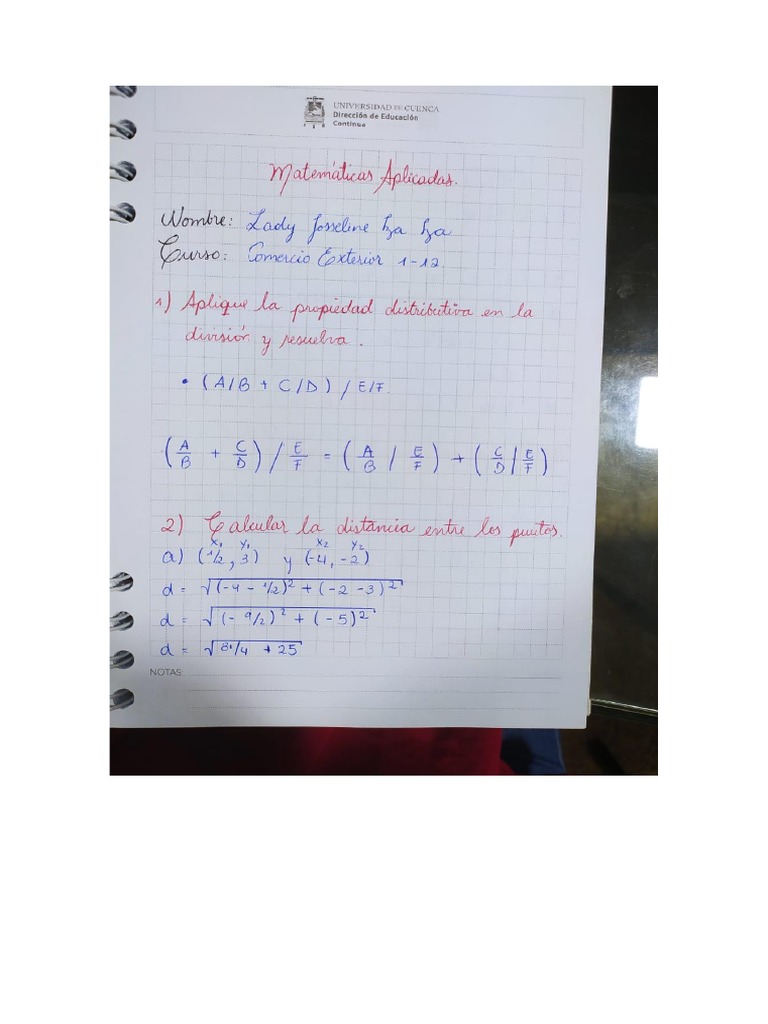 UNIVERSIDAD DE CUENCA
Dirección de Educación
Continua
Matemáticas Aplicadas.
Nombre: Lady Josseline Iza Iza
Curso: Comercio Exterior 1-12.
1) Aplique la propiedad distributiva en la
división y resuelva.
• (A/B + C/D) / E/F.
(A/B + C/D) / E/F = (A/B / E/F) + (C/D / E/F)
2) Calcular la distancia entre los puntos.
x₁ y₁ x₂ y₂
a) (1/2, 3) y (-4, -2)
d = √(-4 - 1/2)² + (-2 -3)²
d = √(- 9/2)² + (-5)²
d = √81/4 + 25
NOTAS: